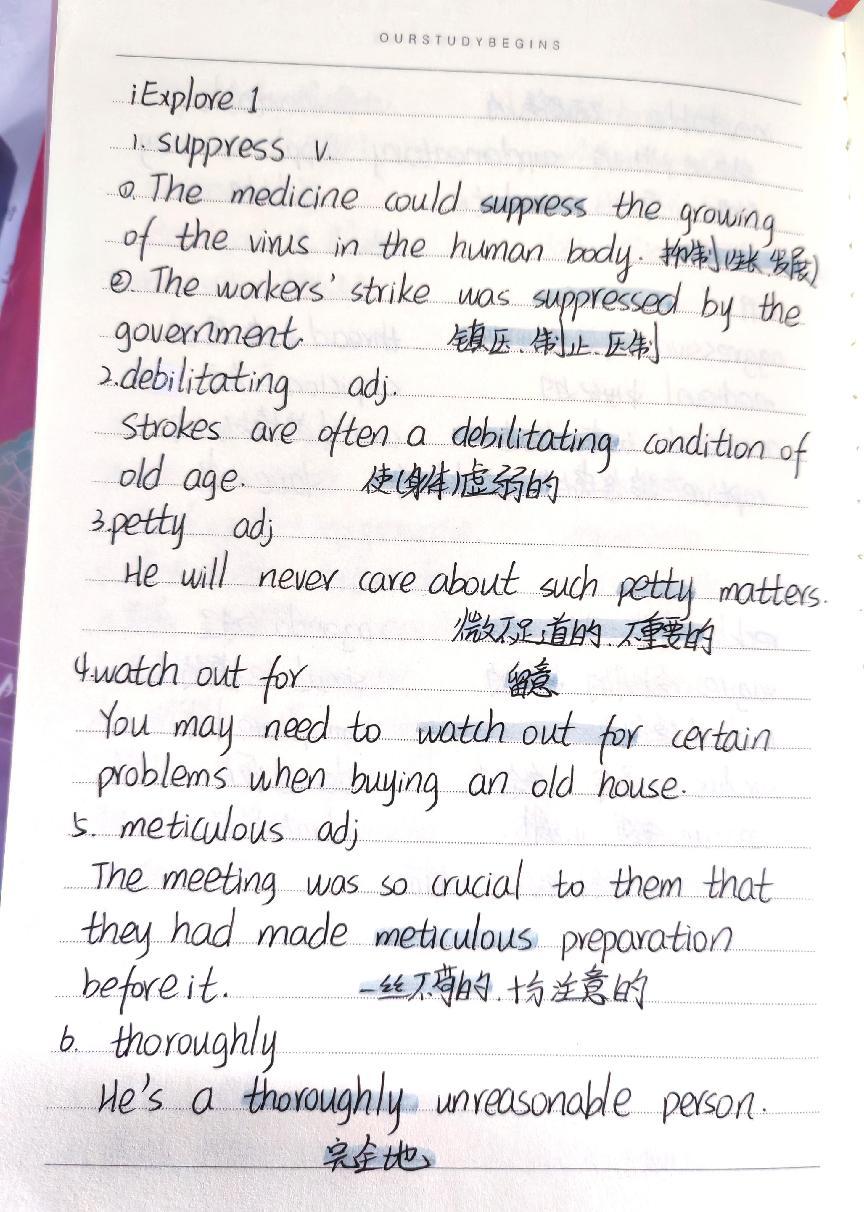 OURSTUDYBEGINS
iExplore 1
1. suppress v.
①. The medicine could suppress the growing
of the virus in the human body. 抑制(生长、发展)
②. The workers' strike was suppressed by the
government. 镇压、制止、压制
2.debilitating adj.
Strokes are often a debilitating condition of
old age. 使(身体)虚弱的
3.petty adj
He will never care about such petty matters.
微不足道的、不重要的
4.watch out for 留意
You may need to watch out for certain
problems when buying an old house.
5. meticulous adj
The meeting was so crucial to them that
they had made meticulous preparation
before it. 一丝不苟的、十分注意的
6. thoroughly
He's a thoroughly unreasonable person.
完全地